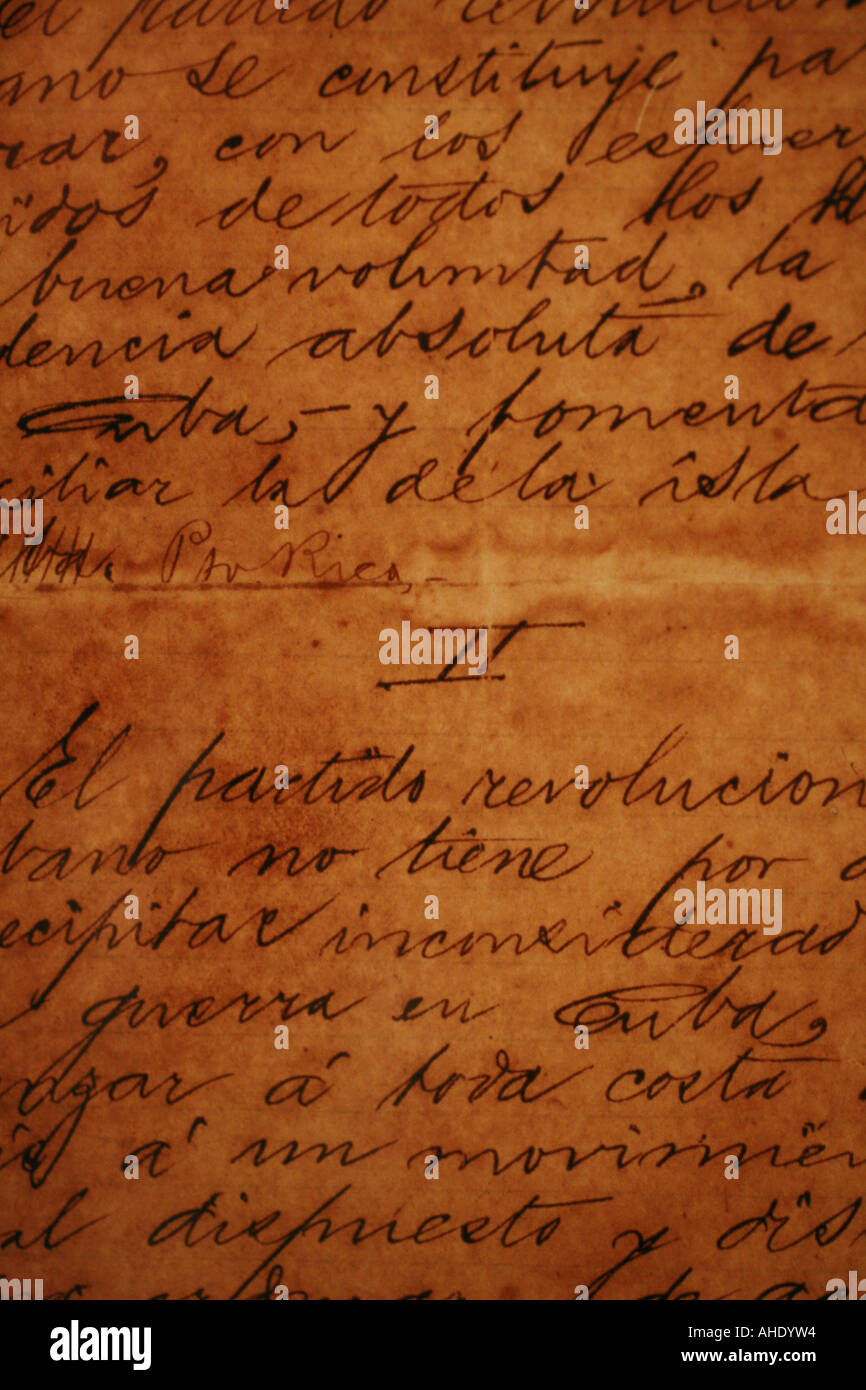 el partido revolucion
ano se constituye pa
rar, con los esfuer
idos de todos los
buena voluntad, la
dencia absoluta de
Cuba, - y fomenta
xiliar la de la isla
Pto. Rico, -
II
El partido revolucion
bano no tiene por o
ecipitar inconsiderad
guerra en Cuba,
nzar á toda costa
á un movimien
al dispuesto y dis
alamy
alamy
Image ID: AHDYW4
www.alamy.com